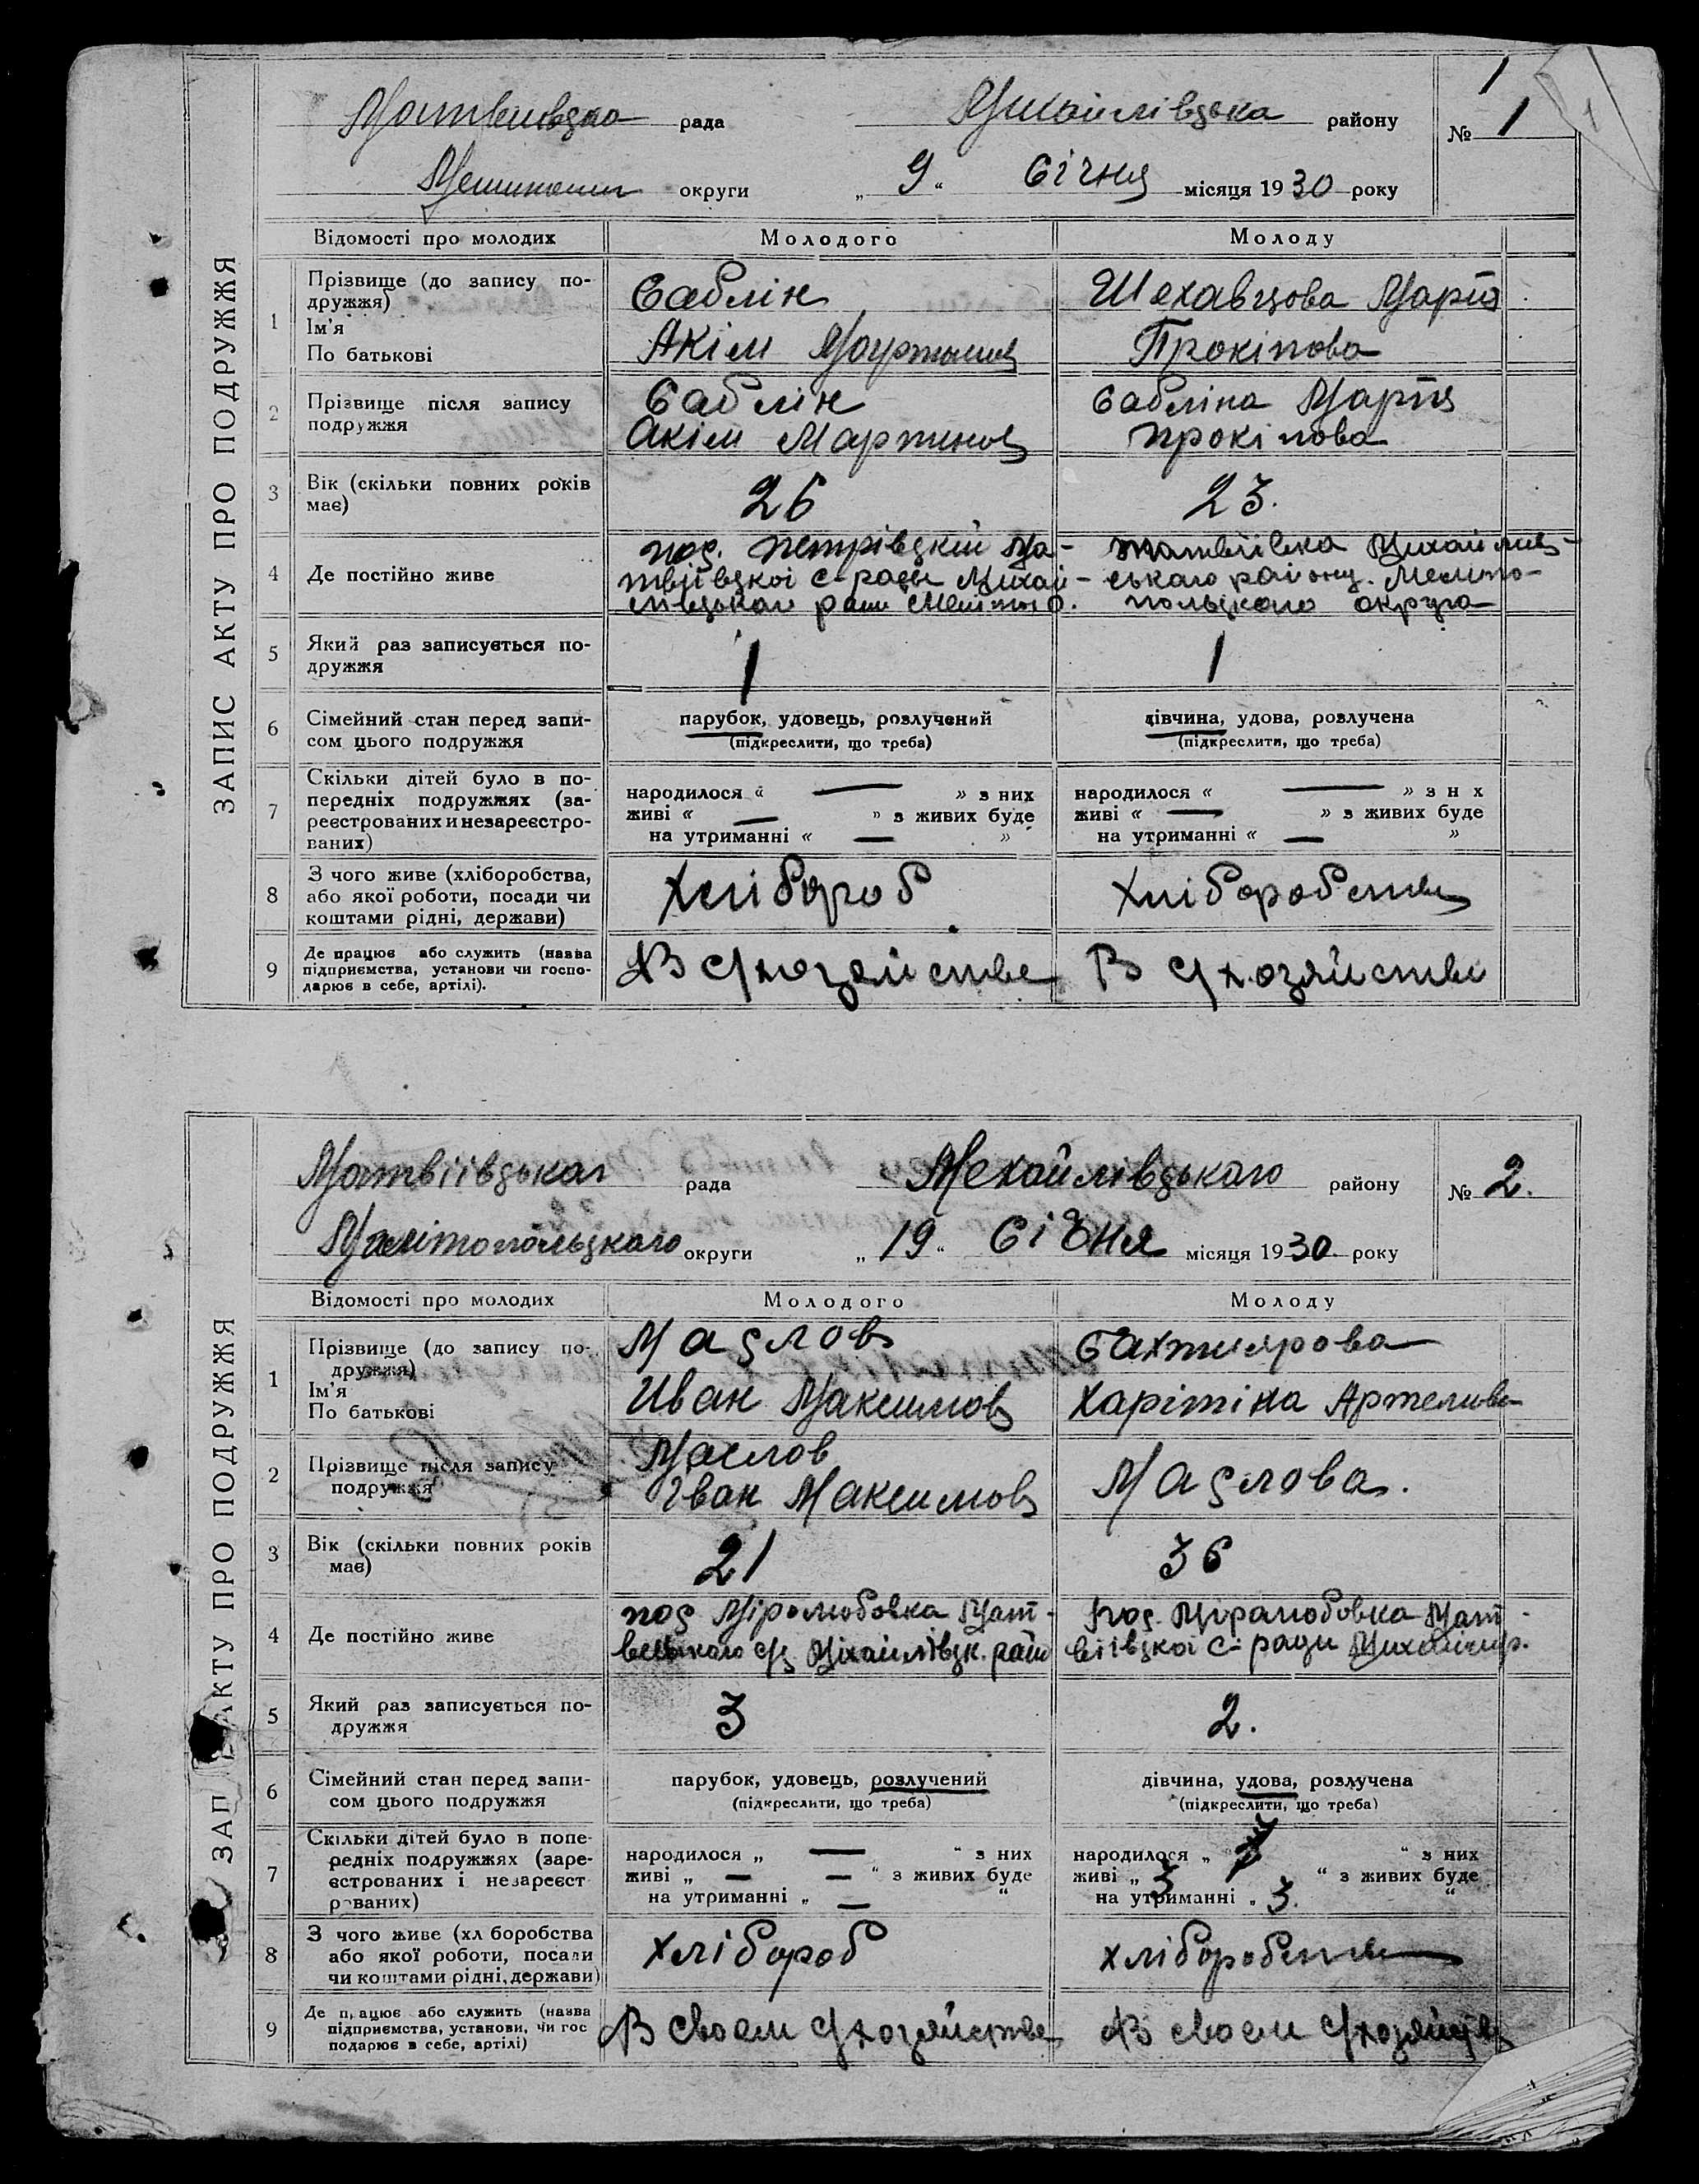 1
Михайлівська району № 1
рада
округи „ 9 “ Січня місяця 1930 року
ЗАПИС АКТУ ПРО ПОДРУЖЖЯ
Відомості про молодих Молодого Молоду
1 Прізвище (до запису по-
дружжя)
Ім'я
По батькові
Саблін
Акім
Шехавцова Марія
Прокіпова
2 Прізвище після запису
подружжя
Саблін
Акім Мартинов
Сабліна Марія
Прокіпова
3 Вік (скільки повних років
має)
26
23.
4 Де постійно живе
пос. Петрівцкій Ма-
твіївцкоі с-ради Михай-
Матвіївка Михайлив-
ського району. Мелито-
польцкого округа
5 Який раз записується по-
дружжя
1
1
6 Сімейний стан перед запи-
сом цього подружжя
парубок, удовець, розлучений
(підкреслити, що треба)
дівчина, удова, розлучена
(підкреслити, що треба)
7 Скільки дітей було в по-
передніх подружжях (за-
реєстрованих и незареєстро-
ваних)
народилося « — » з них
живі « — » з живих буде
на утриманні « — »
народилося « — » з н х
живі « — » з живих буде
на утриманні « — »
8 З чого живе (хліборобства,
або якої роботи, посади чи
коштами рідні, держави)
Хлібороб
9 Де працює або служить (назва
підприємства, установи чи госпо-
дарює в себе, артілі).
В с/хозяйстве
В с/хозяйстве
Матвіівського рада Мехайлівцького району № 2.
Малітопольцкого округи „ 19 “ Січня місяця 1930 року
ЗАП АКТУ ПРО ПОДРУЖЖЯ
Відомості про молодих Молодого Молоду
1 Прізвище (до запису по-
дружжя)
Ім'я
По батькові
Маслов
Иван Максимов
Бахтиярова
Харітіна
2 Прізвище після запису
подружжя
Маслов
Іван Максимов
Маслова.
3 Вік (скільки повних років
має)
21
36
4 Де постійно живе
пос Міролюбовка Мат-
Міхайлівцк. рай
пос. Міралюбовка Мат-
віівцкоі с-ради
5 Який раз записується по-
дружжя
3
2.
6 Сімейний стан перед запи-
сом цього подружжя
парубок, удовець, розлучений
(підкреслити, що треба)
дівчина, удова, розлучена
(підкреслити, що треба)
7 Скільки дітей було в попе-
редніх подружжях (заре-
єстрованих і незареєст
рованих)
народилося „ — “ з них
живі „ — — “ з живих буде
на утриманні „ — “
народилося „ “ з них
живі „ 3 “ з живих буде
на утриманні „ 3. “
8 З чого живе (хл боробства
або якої роботи, посади
чи коштами рідні, держави)
Хлібороб
9 Де працює або служить (назва
підприємства, установи, чи гос
подарює в себе, артілі)
В своем с/хозяйстве
В своем